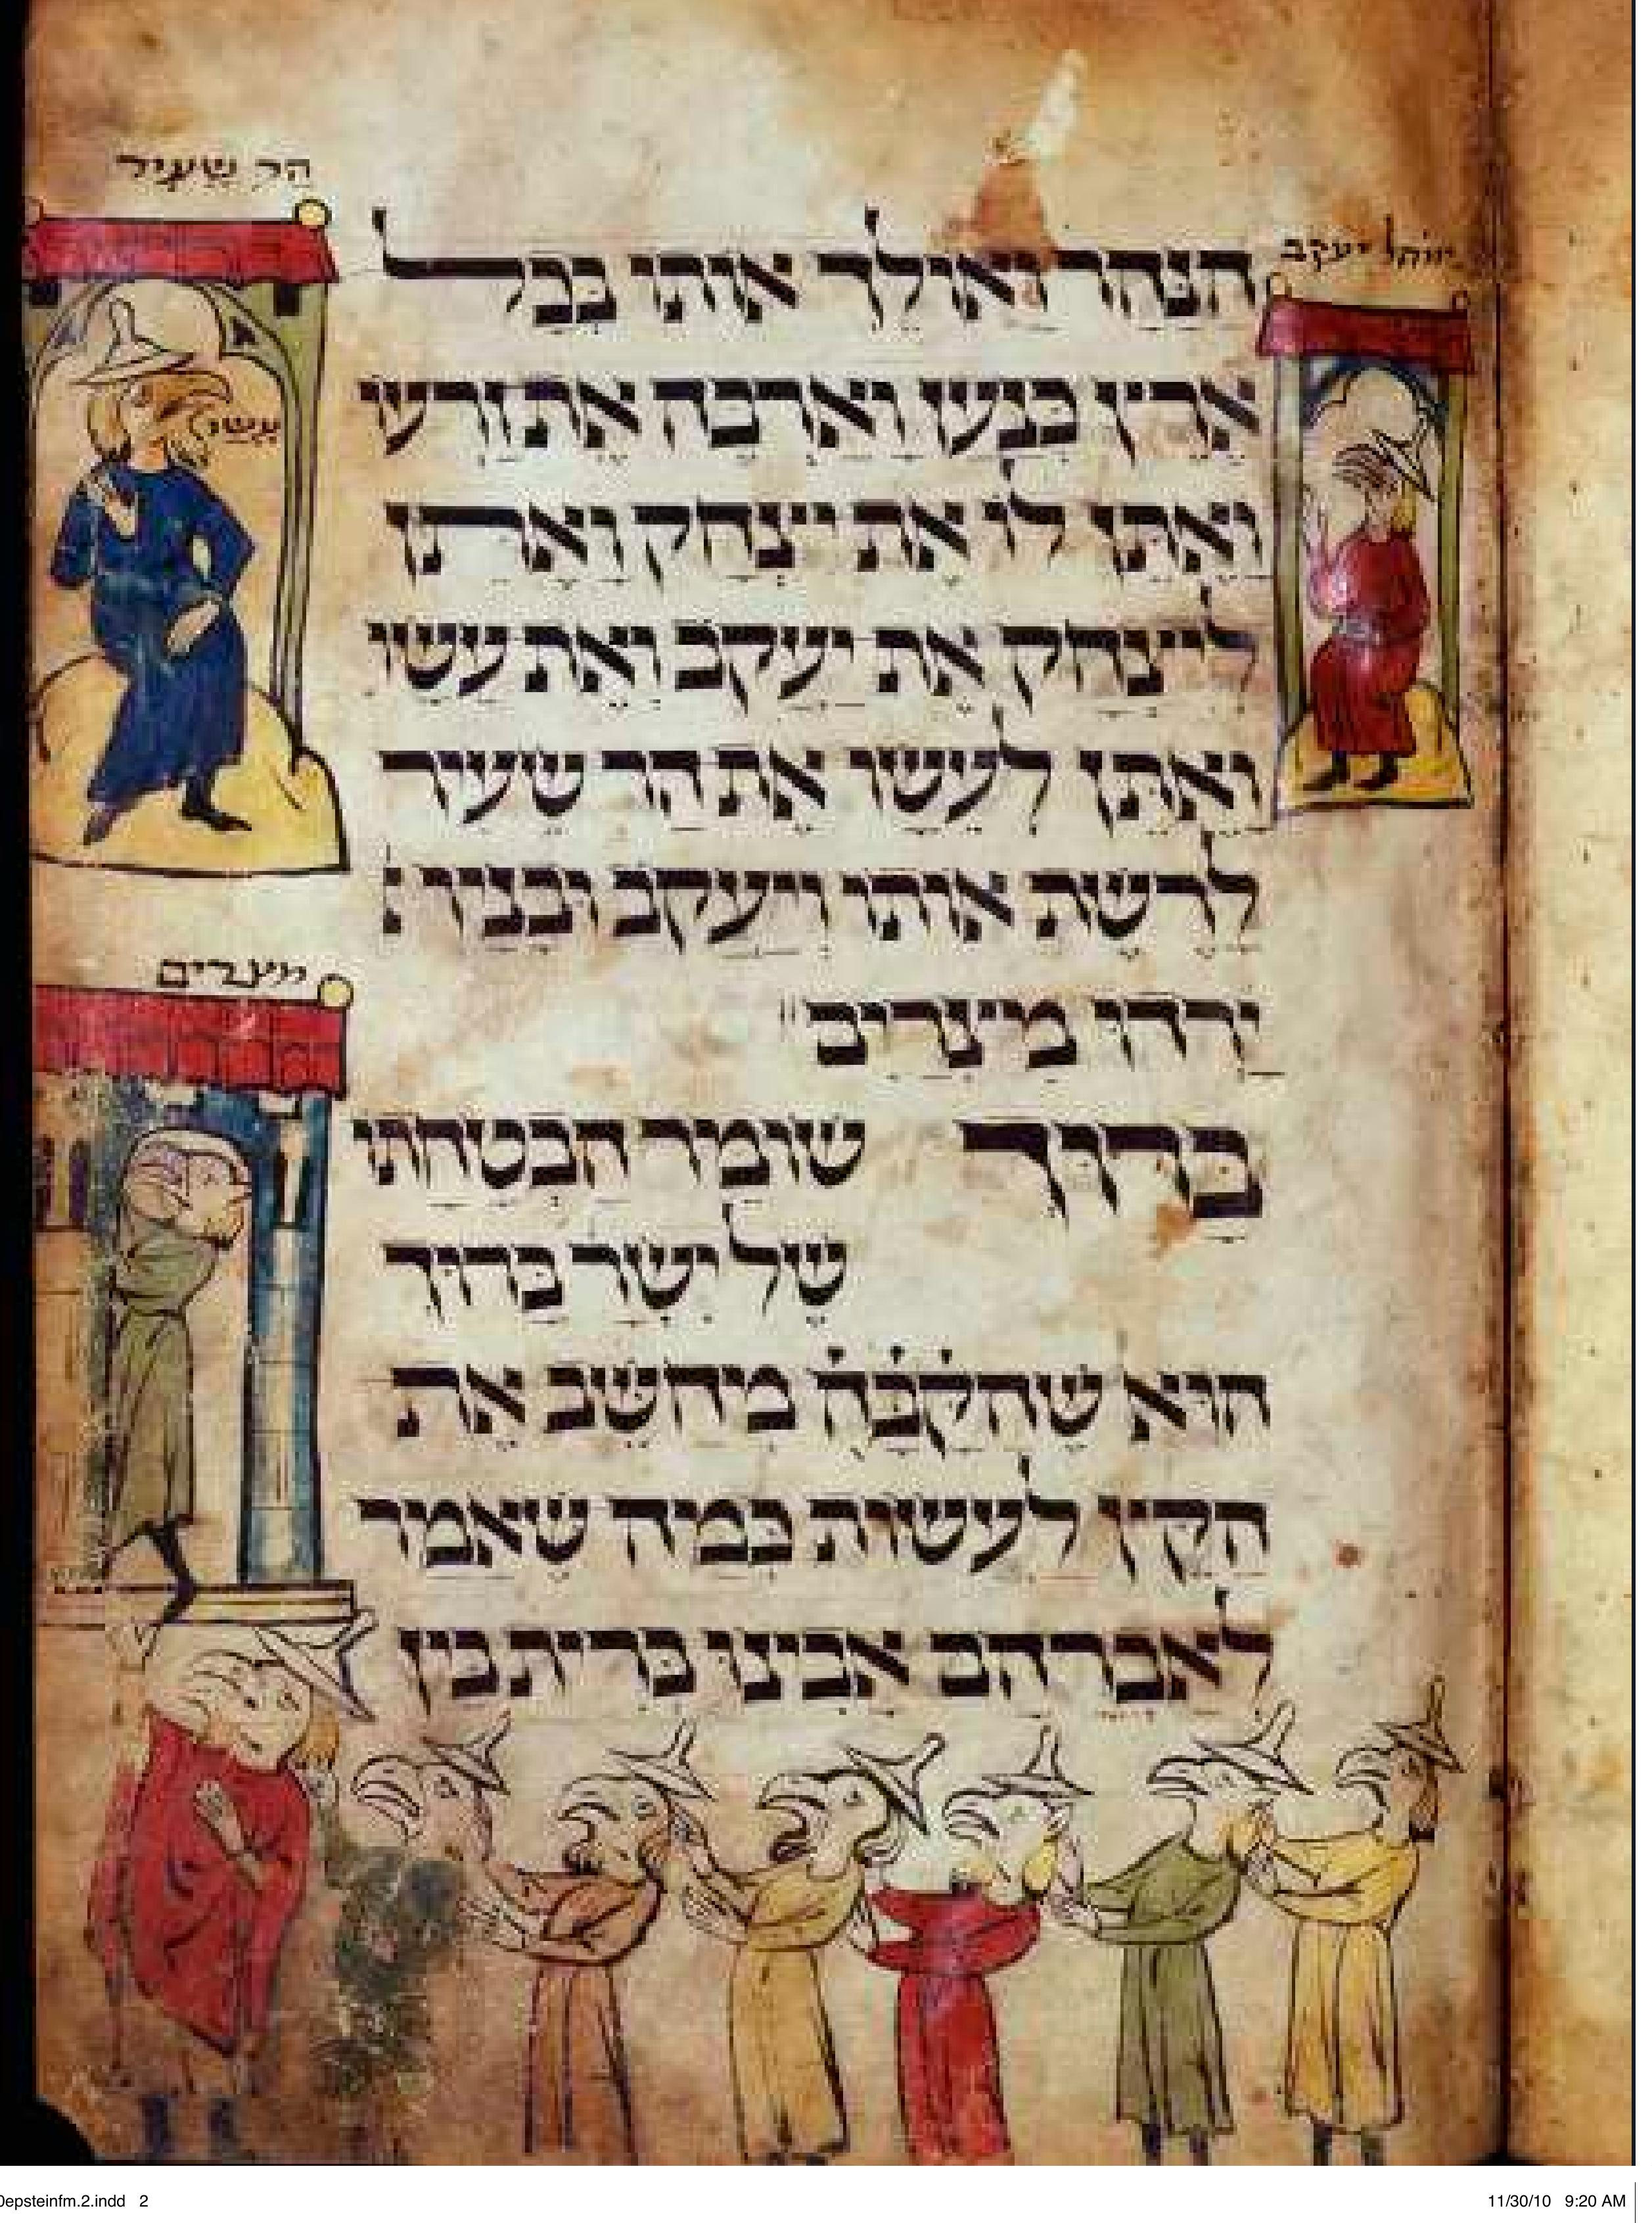 הר שעיר
אוהל יעקב
הנהר ואולך אותו בכל
ארץ כנען וארבה את זרעו
עשו
ואתן לו את יצחק ואתן
ליצחק את יעקב ואת עשו
ואתן לעשו את הר שעיר
לרשת אותו ויעקב ובניו
מצרים
ירדו מצרים
ברוך שומר הבטחתו
של ישר ברוך
הוא שהקבה מחשב את
הקץ לעשות כמה שאמר
לאברהם אבינו ברית בין
0epsteinfm.2.indd 2
11/30/10 9:20 AM